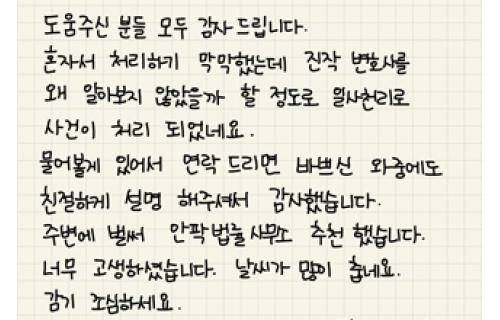 도움주신 분들 모두 감사드립니다.
혼자서 처리하기 막막했는데 진작 변호사를
왜 알아보지 않았을까 할 정도로 일사천리로
사건이 처리 되었네요.
물어볼게 있어서 연락 드리면 바쁘신 와중에도
친절하게 설명 해주셔서 감사했습니다.
주변에 벌써 안팍법률사무소 추천 했습니다.
너무 고생하셨습니다. 날씨가 많이 춥네요.
감기 조심하세요.